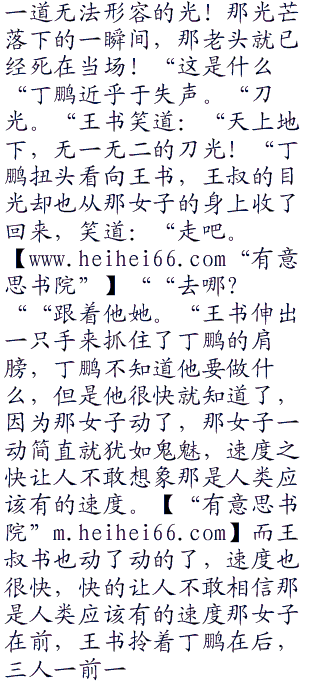 一道无法形容的光！那光芒
落下的一瞬间，那老头就已
经死在当场！“这是什么
“丁鹏近乎于失声。“刀
光。“王书笑道：“天上地
下，无一无二的刀光！“丁
鹏扭头看向王书，王叔的目
光却也从那女子的身上收了
回来，笑道：“走吧。
【www.heihei66.com“有意
思书院”】““去哪？
““跟着他她。“王书伸出
一只手来抓住了丁鹏的肩
膀，丁鹏不知道他要做什
么，但是他很快就知道了，
因为那女子动了，那女子一
动简直就犹如鬼魅，速度之
快让人不敢想象那是人类应
该有的速度。【“有意思书
院”m.heihei66.com】而王
叔书也动了动的了，速度也
很快，快的让人不敢相信那
是人类应该有的速度那女子
在前，王书拎着丁鹏在后，
三人一前一